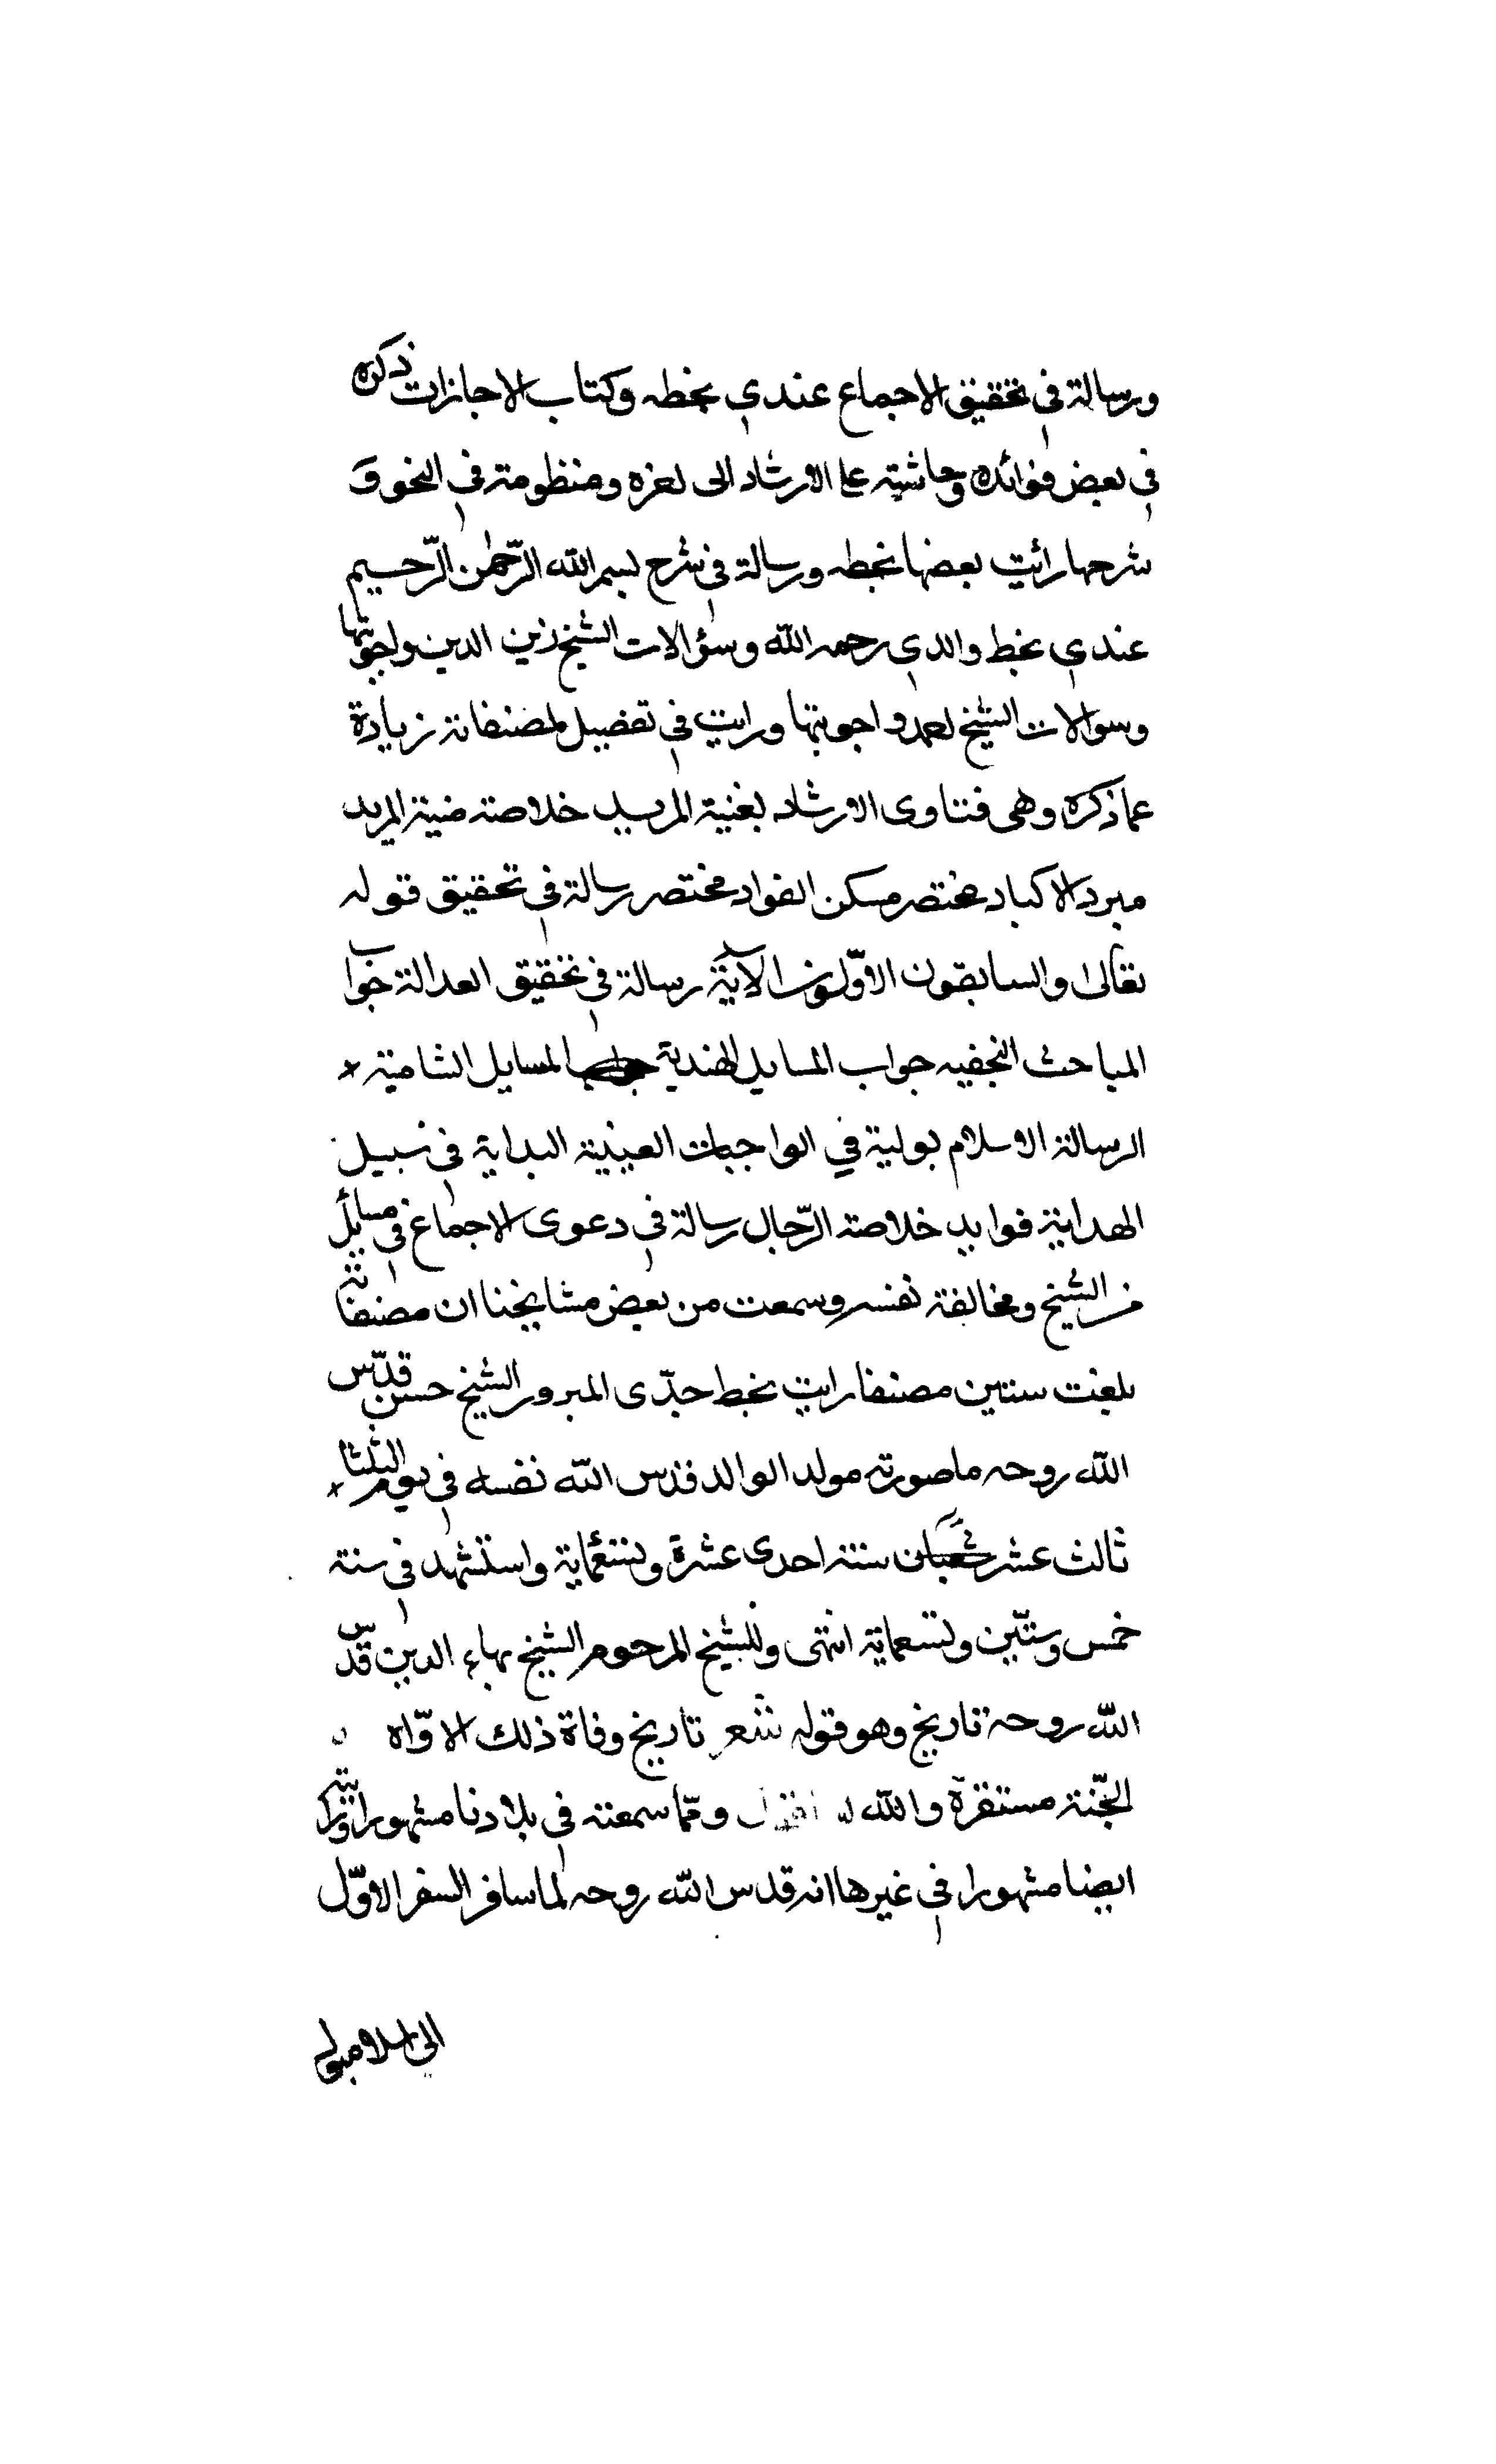 ورسالة في تحقيق الاجماع عندي بخطه وكتاب الاجازات ذكره
في بعض فوائده وحاشية على الارشاد الى لغزه ومنظومة في النحو و
شرحها رأيت بعضها بخطه ورسالة في شرح بسم الله الرّحمٰن الرّحيم
عندي بخط والدي رحمه الله وسؤالات الشيخ زين الدين واجوبتها
وسوالات الشيخ احمد واجوبتها ورايت في تفصيل لمصنفاته زيادة
عما ذكره وهى فتاوى الارشاد بغنية المريد خلاصة منية المريد
مبرد الاكباد مختصر مسكن الفواد مختصر رسالة في تحقيق قوله
تعالى والسابقون الاوّلون الآية رسالة في تحقيق العدالة جواب
المباحث النجفيه جواب المسايل الهندية جواب المسايل الشامية
الرسالة الاسلامبولية في الواجبات العينية البداية في سبيل
الهداية فوايد خلاصة الرّجال رسالة في دعوى الاجماع في مسايل
من الشيخ ومخالفة نفسه وسمعت من بعض مشايخنا ان مصنفاته
بلغت ستين مصنفا رايت بخط جدّى المبرور الشيخ حسن قدّس
الله روحه ما صورته مولد الوالد قدس الله نفسه في يوم الثلثا
ثالث عشر سنة احدى عشرة وتسعماية واستشهد في سنة
خمس وستّين وتسعماية انتهى وللشيخ المرحوم الشيخ بهاء الدين قدّس
الله روحه تاريخ وهو قوله شعر تاريخ وفاة ذلك الاوّاه
الجّنة مستقرّه والله ومّما سمعته في بلادنا مشهورا ورايته
ايضا مشهورا في غيرها انه قدس الله روحه لما سافر السفر الاوّل
الى اسلامبول